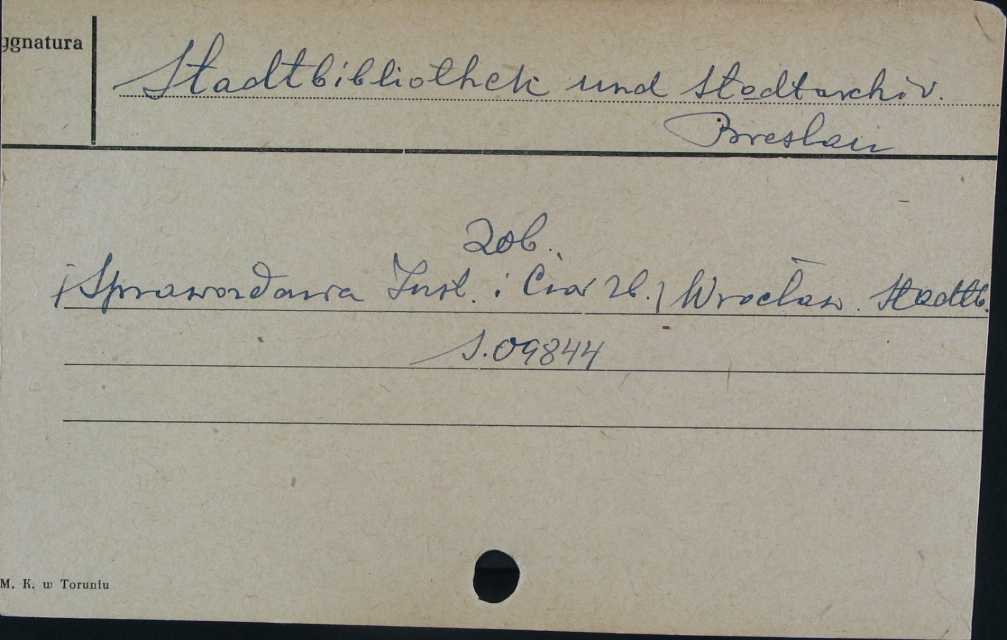 ygnatura
Stadtbibliothek und Stadtarchiv.
Breslau
Zob.
Sprawozdania Inst. i
Wrocław. Stadtb.
S.09844
M. K. w Toruniu